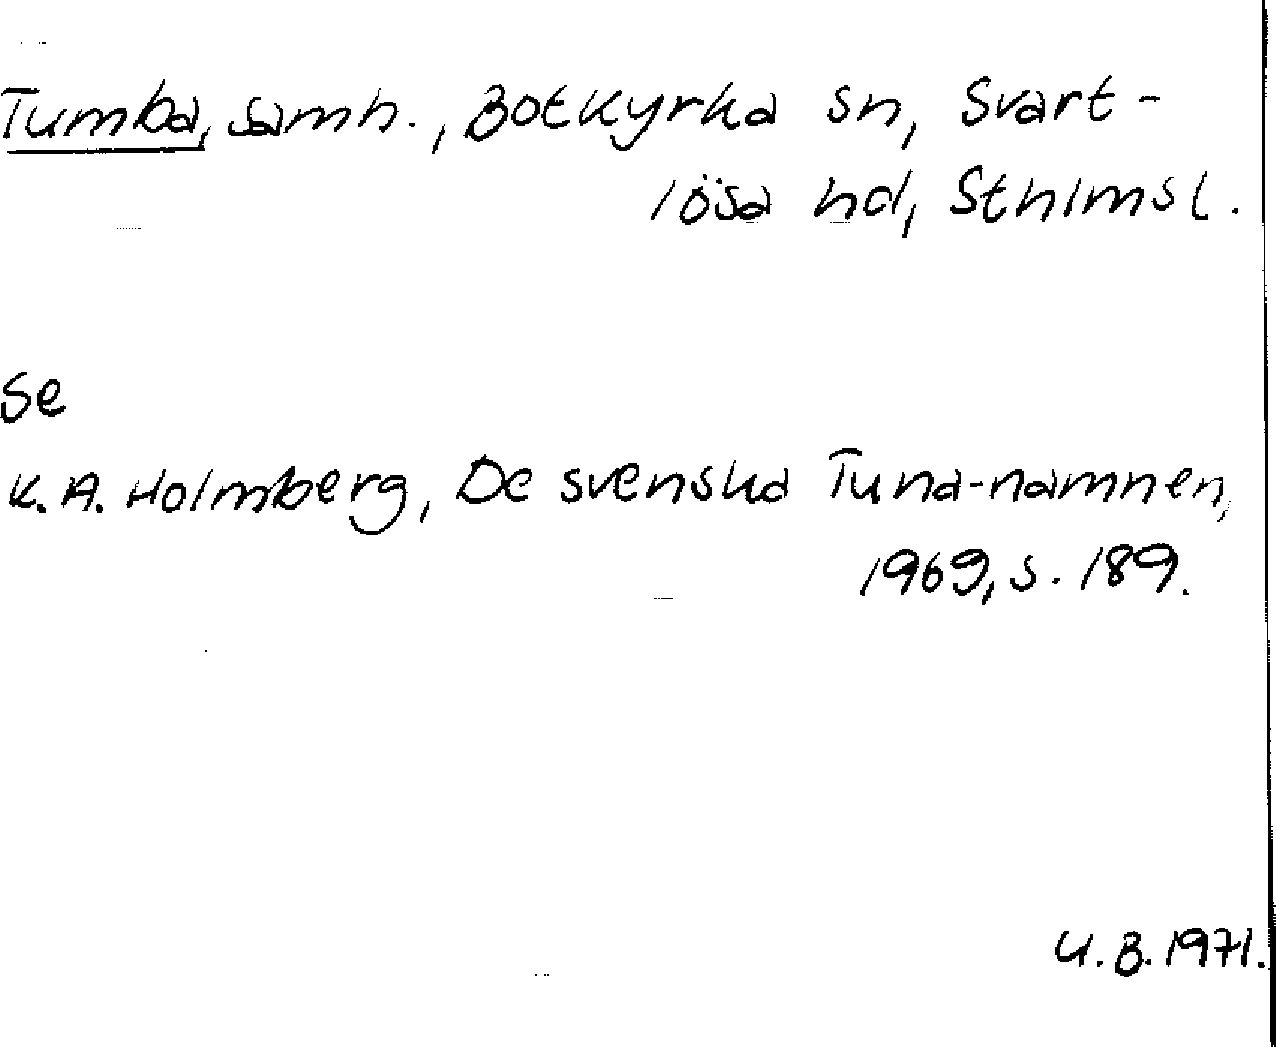 Tumba, samh., Botkyrka sn, Svart-
lösa hd, Sthlmsl.
Se
K.A. Holmberg, De svenska Tuna-namnen,
1969, s. 189.
U.B. 1971.